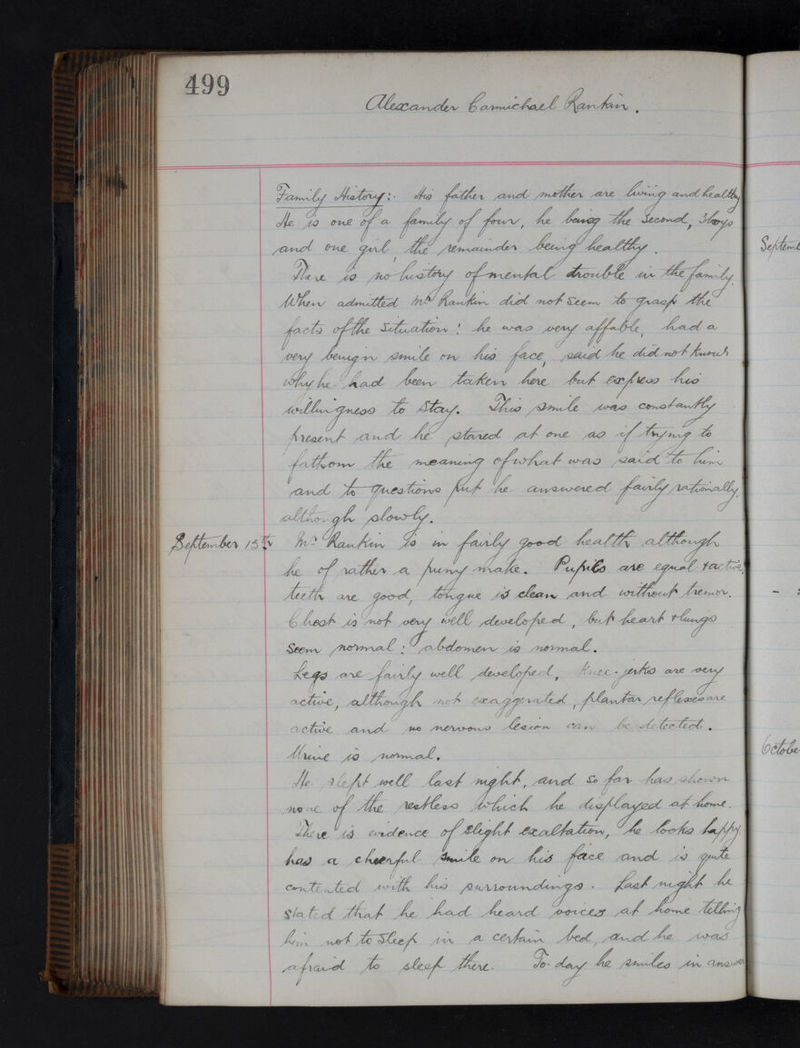 499
Alexander Carmichael Rankin.
Family History:. His father and mother are living and healthy
He is one of a family of four, he being the second, 3 boys
and one girl, the remainder being healthy.
There is no history of mental trouble in the family.
When admitted Mr Rankin did not seem to grasp the
facts of the situation: he was very affable, had a
very benign smile on his face, said he did not know
why he had been taken here but express his
willingness to stay. This smile was constantly
present and he stared at one as if trying to
fathom the meaning of what was said to him
and to questions put he answered fairly rationally,
although slowly.
September 13th Mr Rankin is in fairly good health although
he of rather a puny make. Pupils are equal & active,
teeth are good, tongue is clean and without tremor.
Chest is not very well developed, but heart & lungs
seem normal: abdomen is normal.
Legs are fairly well developed, knee-jerks are very
active, although not exaggerated, plantar reflexes are
active and no nervous lesion can be detected.
Urine is normal.
He slept well last night, and so far has shown
none of the restless which he displayed at home.
There is evidence of slight exaltation, he looks happy
has a cheerful smile on his face and is quite
contented with his surroundings. Last night he
stated that he had heard voices at home telling
him not to sleep in a certain bed, and he was
afraid to sleep there. To-day he smiles in answer
Septemb
Octobe